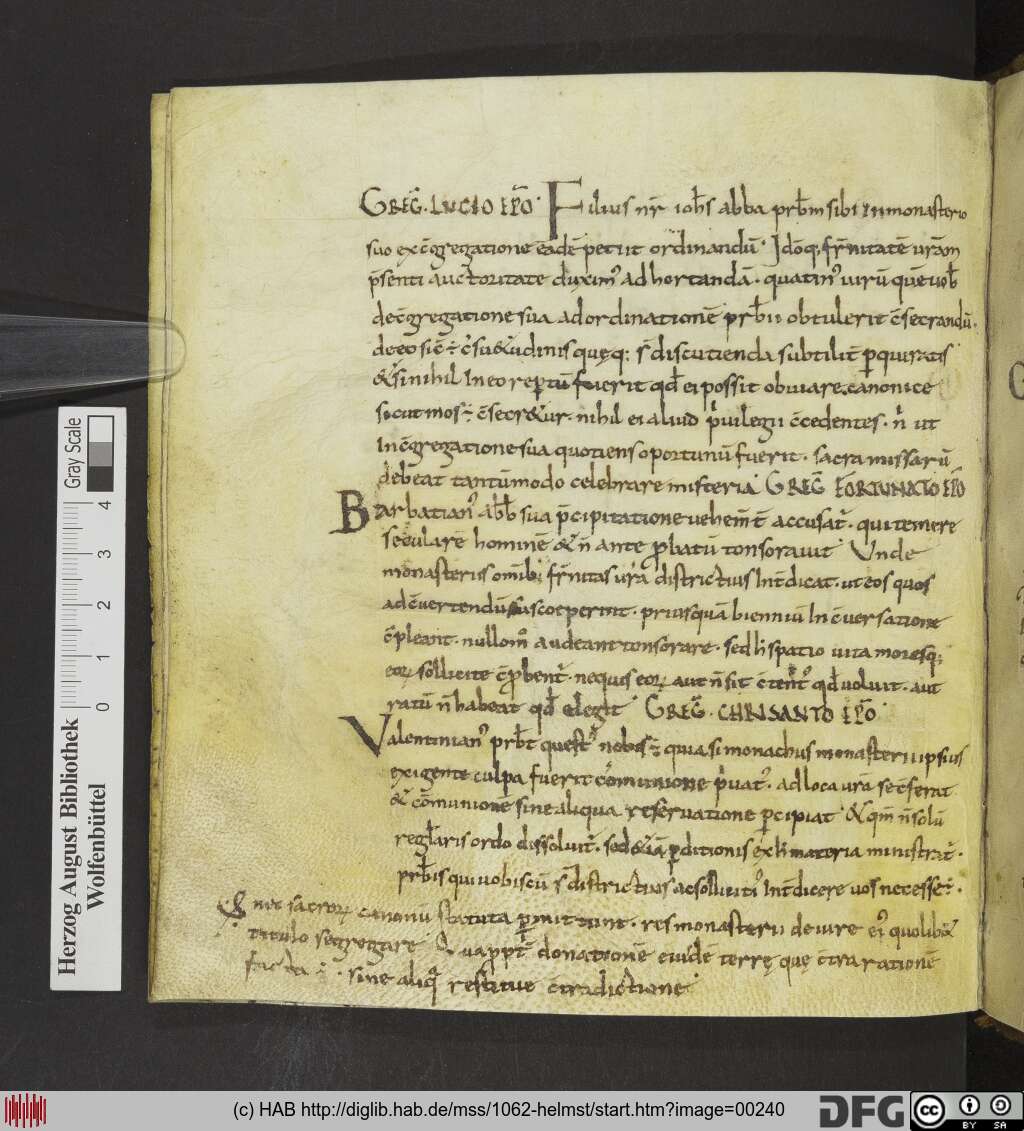 GREG̅. LUCIO EP̅O. Filius nr̅ ioh̅s abba prb̅m sibi in monasterio
suo ex c̅gregatione eade̅ petiit ordinandu̅. Ido̅q; fr̅nitate̅ vr̅am
p̅senti auctoritate duxim' ad hortanda̅. quatin' uiru̅ que̅ uob̅
de c̅gregatione sua ad ordinatione̅ prb̅ii obtulerit c̅secrandu̅.
subtilit̅
& si nihil in eo rep̅tu̅ fuerit qd̅ ei possit obuiare. canonice
sicut mos ÷ c̅secr&ur. nihil ei aliud p̅uilegii c̅cedentes. n̅ ut
in c̅gregatione sua quotiens oportunu̅ fuerit. sacra missaru̅
debeat tantu̅modo celebrare misteria GREG̅ FORTUNATO EP̅O
Barbatian' abb̅ sua p̅cipitatione uehem̅t̅ accusat̅. qui temere
seculare̅ homine̅ & n̅ ante p̅batu̅ tonsorauit Unde
monasteriis omib; fr̅nitas ur̅a districtius int̅dicat. ut eos quos
ad c̅uertendu̅ susceperint. priusqua̅ bienniu̅ in c̅uersatione
c̅pleant. nullom̅ audeant tonsorare. sed h̅ spatio uita moresq;
eor̅ sollicite c̅p̅bent̅. ne quis eor̅ aut n̅ sit c̅tent' qd̅ uoluit. aut
ratu̅ n̅ habeat qd̅ elegit GREG̅. CHRISANTO EP̅O
Valentinian' prb̅t quest' nobis ÷ quia si monachus monasterii ipsius
exigente culpa fuerit co̅munione p̅uat'. ad loca ur̅a se c̅ferat
& co̅munione̅ sine aliqua reseruatione p̅cipiat & qm̅ n̅ solu̅
regl̅aris ordo dissoluit̅. sed &ia̅ p̅ditionis ex h̅ materia ministrat̅.
prb̅is qui uobiscu̅ s̅ districtius ac sollicit' int̅dicere uos necesse ÷.
& nec sacror̅ canonu̅ statuta p̅mittunt. res monasterii de iure ei' quolib&
titulo segregare Quappt̅ donatione̅ eiusde̅ terrę quę c̅tra ratione̅
facta ÷. sine aliq̅ restitue c̅tradictione
Gray Scale
0 1 2 3 4
Herzog August Bibliothek
Wolfenbüttel
(c) HAB http://diglib.hab.de/mss/1062-helmst/start.htm?image=00240
DFG
cc BY SA